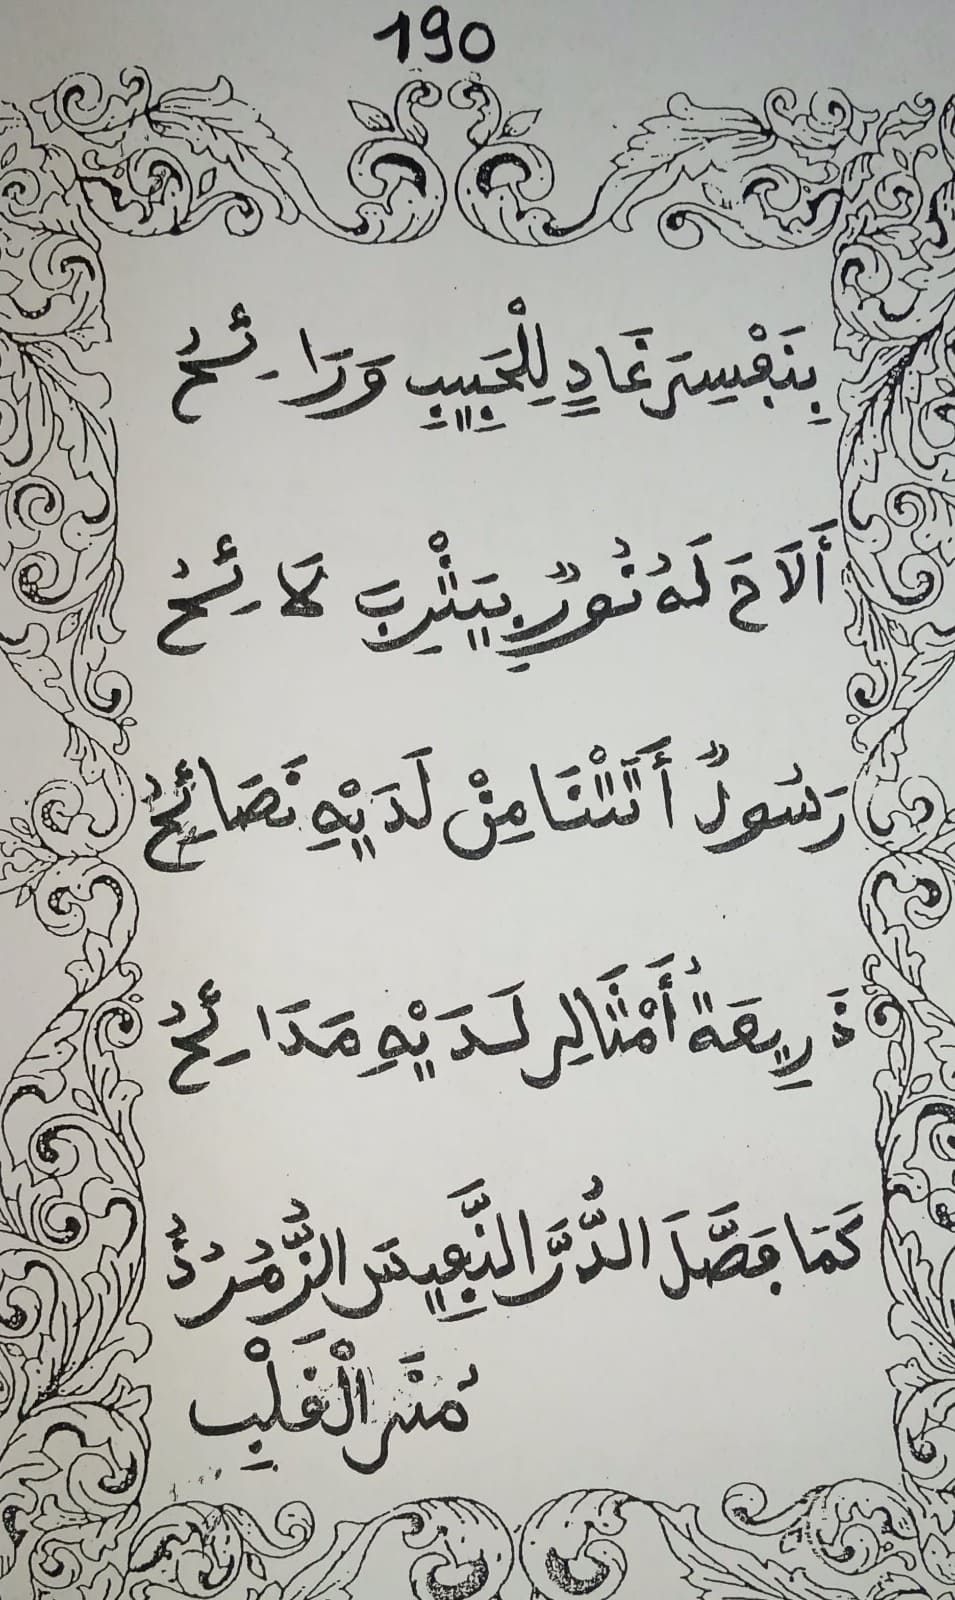 190
بِنَفْسِي غَادٍ لِلْحَبِيبِ وَرَائِحُ
أَلَاحَ لَهُ نُورٌ بِيَثْرِبَ لَائِحُ
رَسُولٌ أَتَتْنَا مِنْ لَدَيْهِ نَصَائِحُ
ذَرِيعَةُ أَمْثَالِي لَدَيْهِ مَدَائِحُ
كَمَا فَصَّلَ الدُّرَّ النَّفِيسَ الزُّمُرُذُ
مُنَى الْقَلْبِ